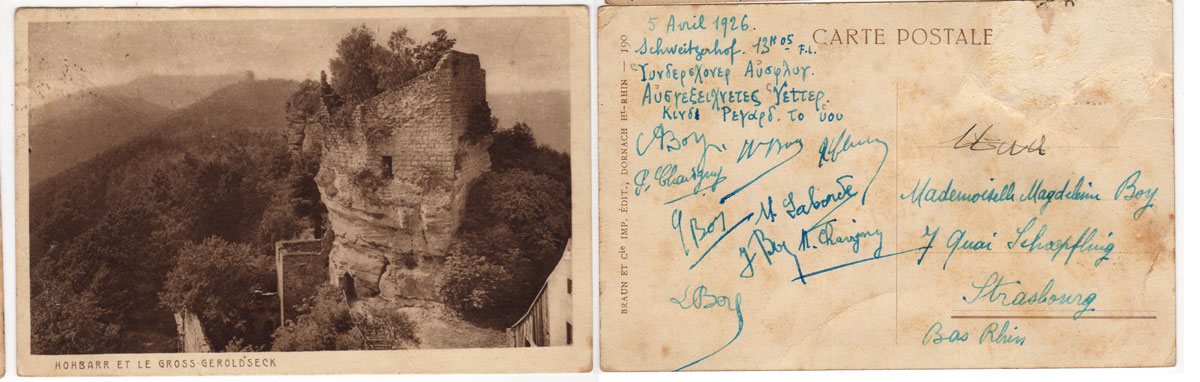 HOHBARR ET LE GROSS-GEROLDSECK
BRAUN ET Cie IMP. ÉDIT., DORNACH Ht-RHIN — 190
CARTE POSTALE
5 Avril 1926.
Schweitzerhof. 13H05 F.L.
Υυνδερσχονερ Αυσφλυγ.
Αυσγεξειχνετες Υεττερ.
Κινδ Ρεγαρδ. το υου
ABoy
P. Chavigny
M Laborde
J Boy M. Chavigny
L Boy
Mademoiselle Magdeleine Boy
7 Quai Schoepfling
Strasbourg
Bas Rhin